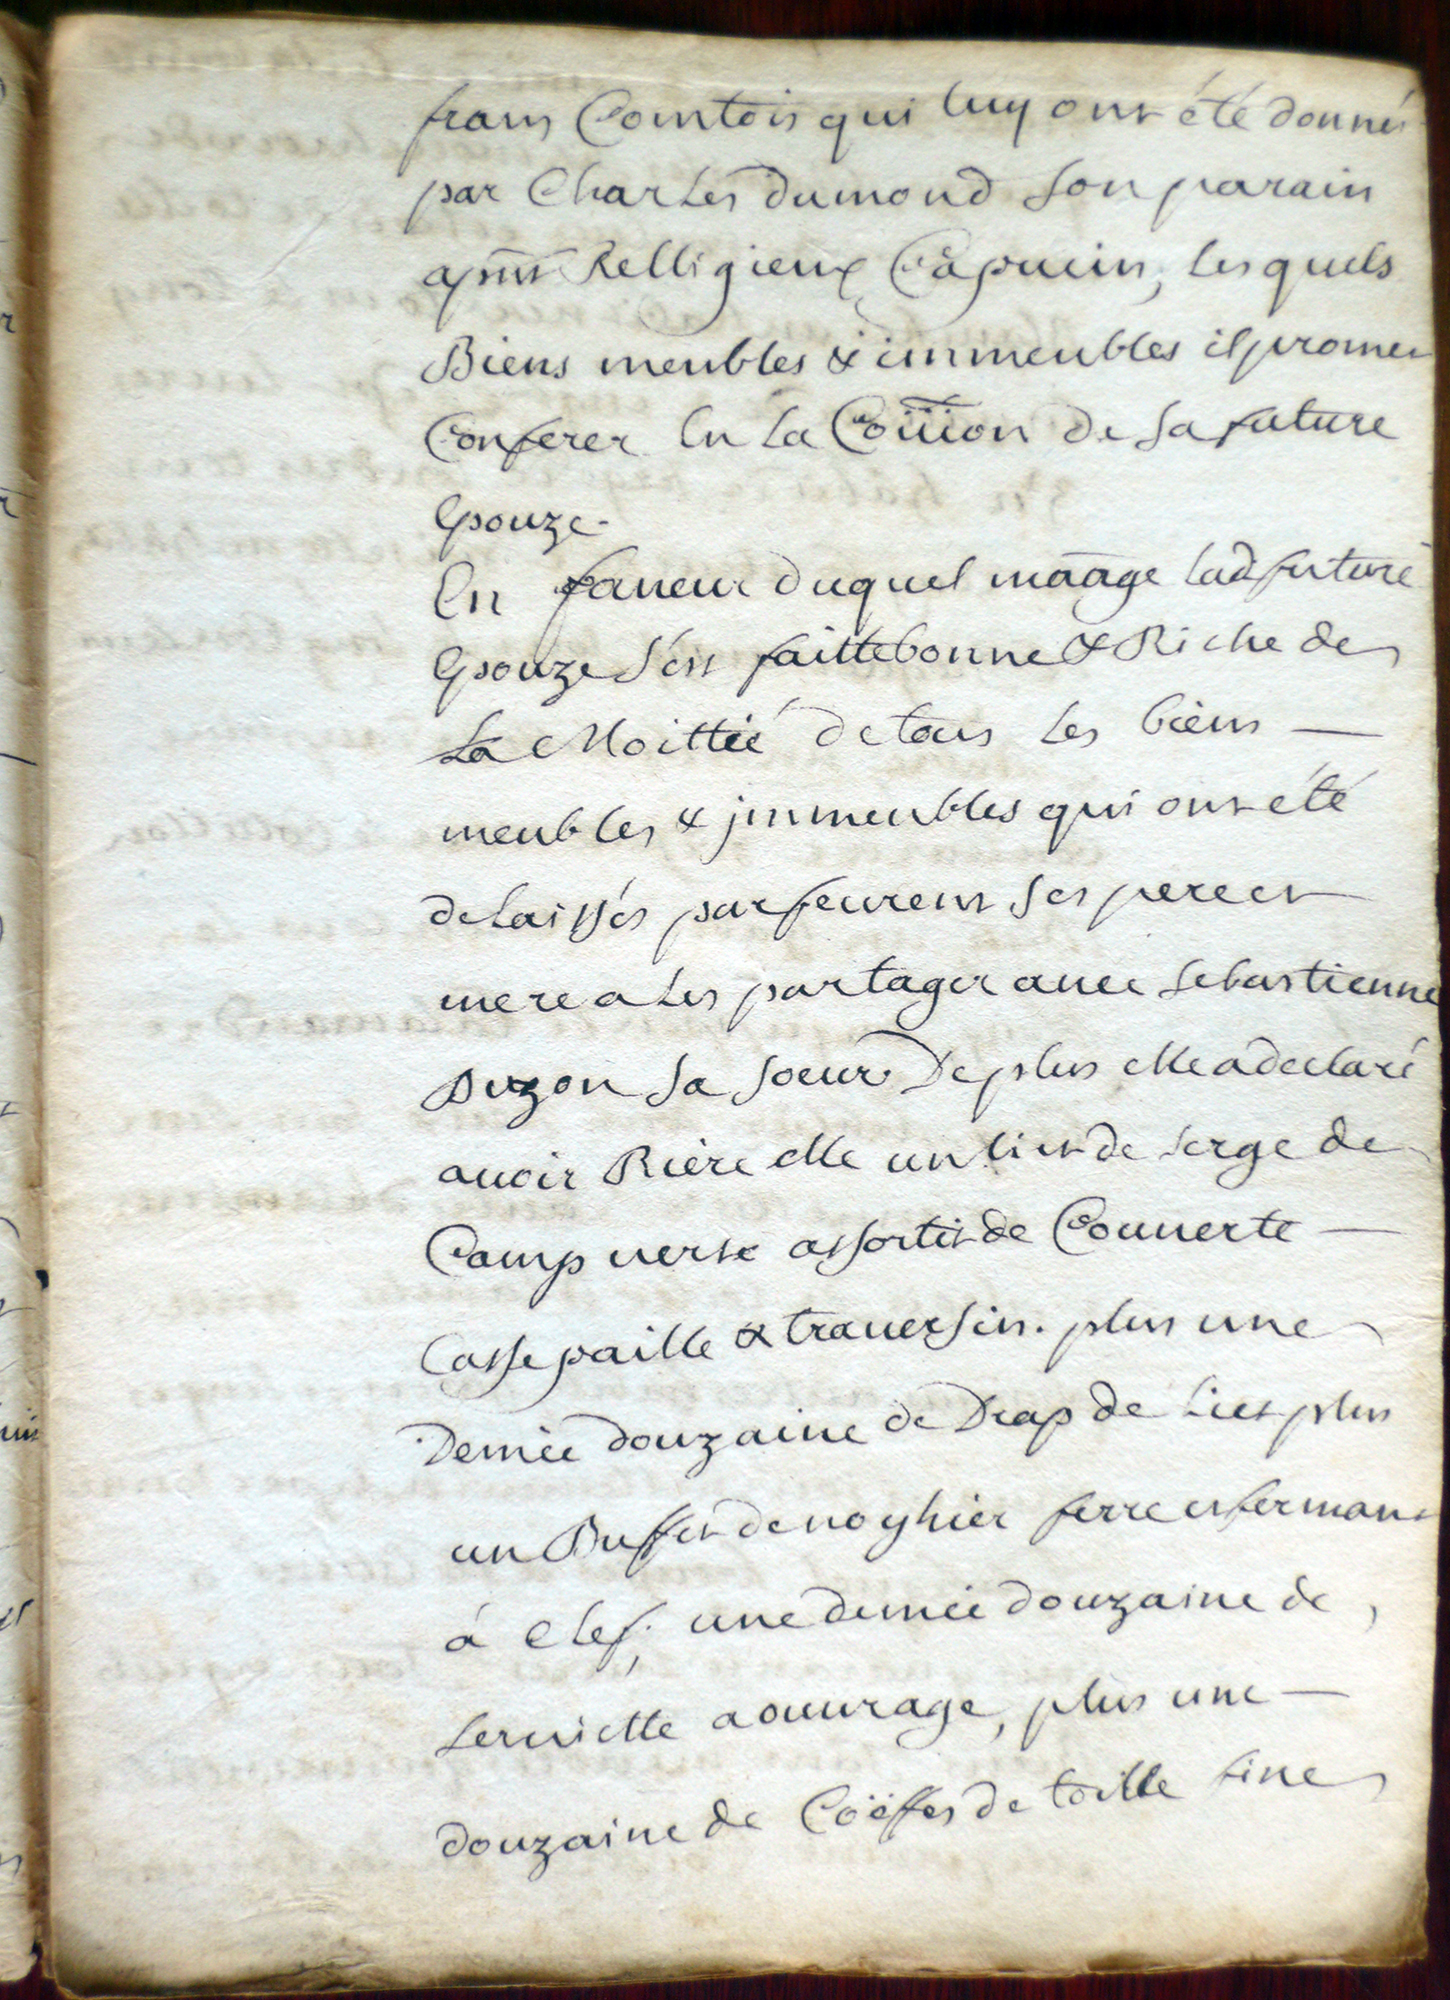 frans Comtois qui luy ont été donnés
par Charles dumond son parain
apnt Relligieux Capucin, les quels
Biens meubles & immeubles il promet
Conferer En la Coiiion de sa future
Epouze.
En faueur duquel maage lad future
Epouze s'est faitte bonne & Riche de
La Moittié de tous les biens —
meubles & jmmeubles qui ont été
delaissés par feurent ses pere et
mere a les partager auec Sebastienne
Duzon sa soeur De plus elle a declaré
auoir Riere elle un lict de serge de
Camp verte assortit de Couuerte —
Casse paille & trauersin. plus une
Demie douzaine de Drap de Lict plus
un Buffet de noyhier ferre et fermant
á Clef, une demie douzaine de
seruiette a ouurage, plus une —
douzaine de Coëffes de toille fine